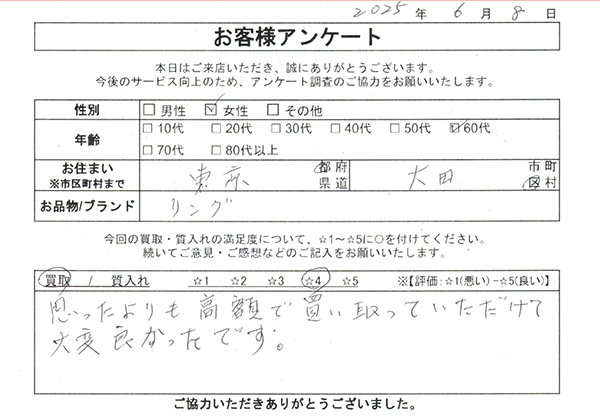 2025 年 6 月 8 日
お客様アンケート
本日はご来店いただき、誠にありがとうございます。
今後のサービス向上のため、アンケート調査のご協力をお願いいたします。
性別 □男性 ☑女性 □その他
年齢 □10代 □20代 □30代 □40代 □50代 ☑60代
□70代 □80代以上
お住まい 東京 都府 大田 市町
※市区町村まで 県道 区村
お品物/ブランド リング
今回の買取・質入れの満足度について、☆1～☆5に○を付けてください。
続いてご意見・ご感想などのご記入をお願いいたします。
買取 / 質入れ ☆1 ☆2 ☆3 ☆4 ☆5 ※【評価:☆1(悪い)-☆5(良い)】
思ったよりも高額で買い取っていただけて
大変良かったです。
ご協力いただきありがとうございました。